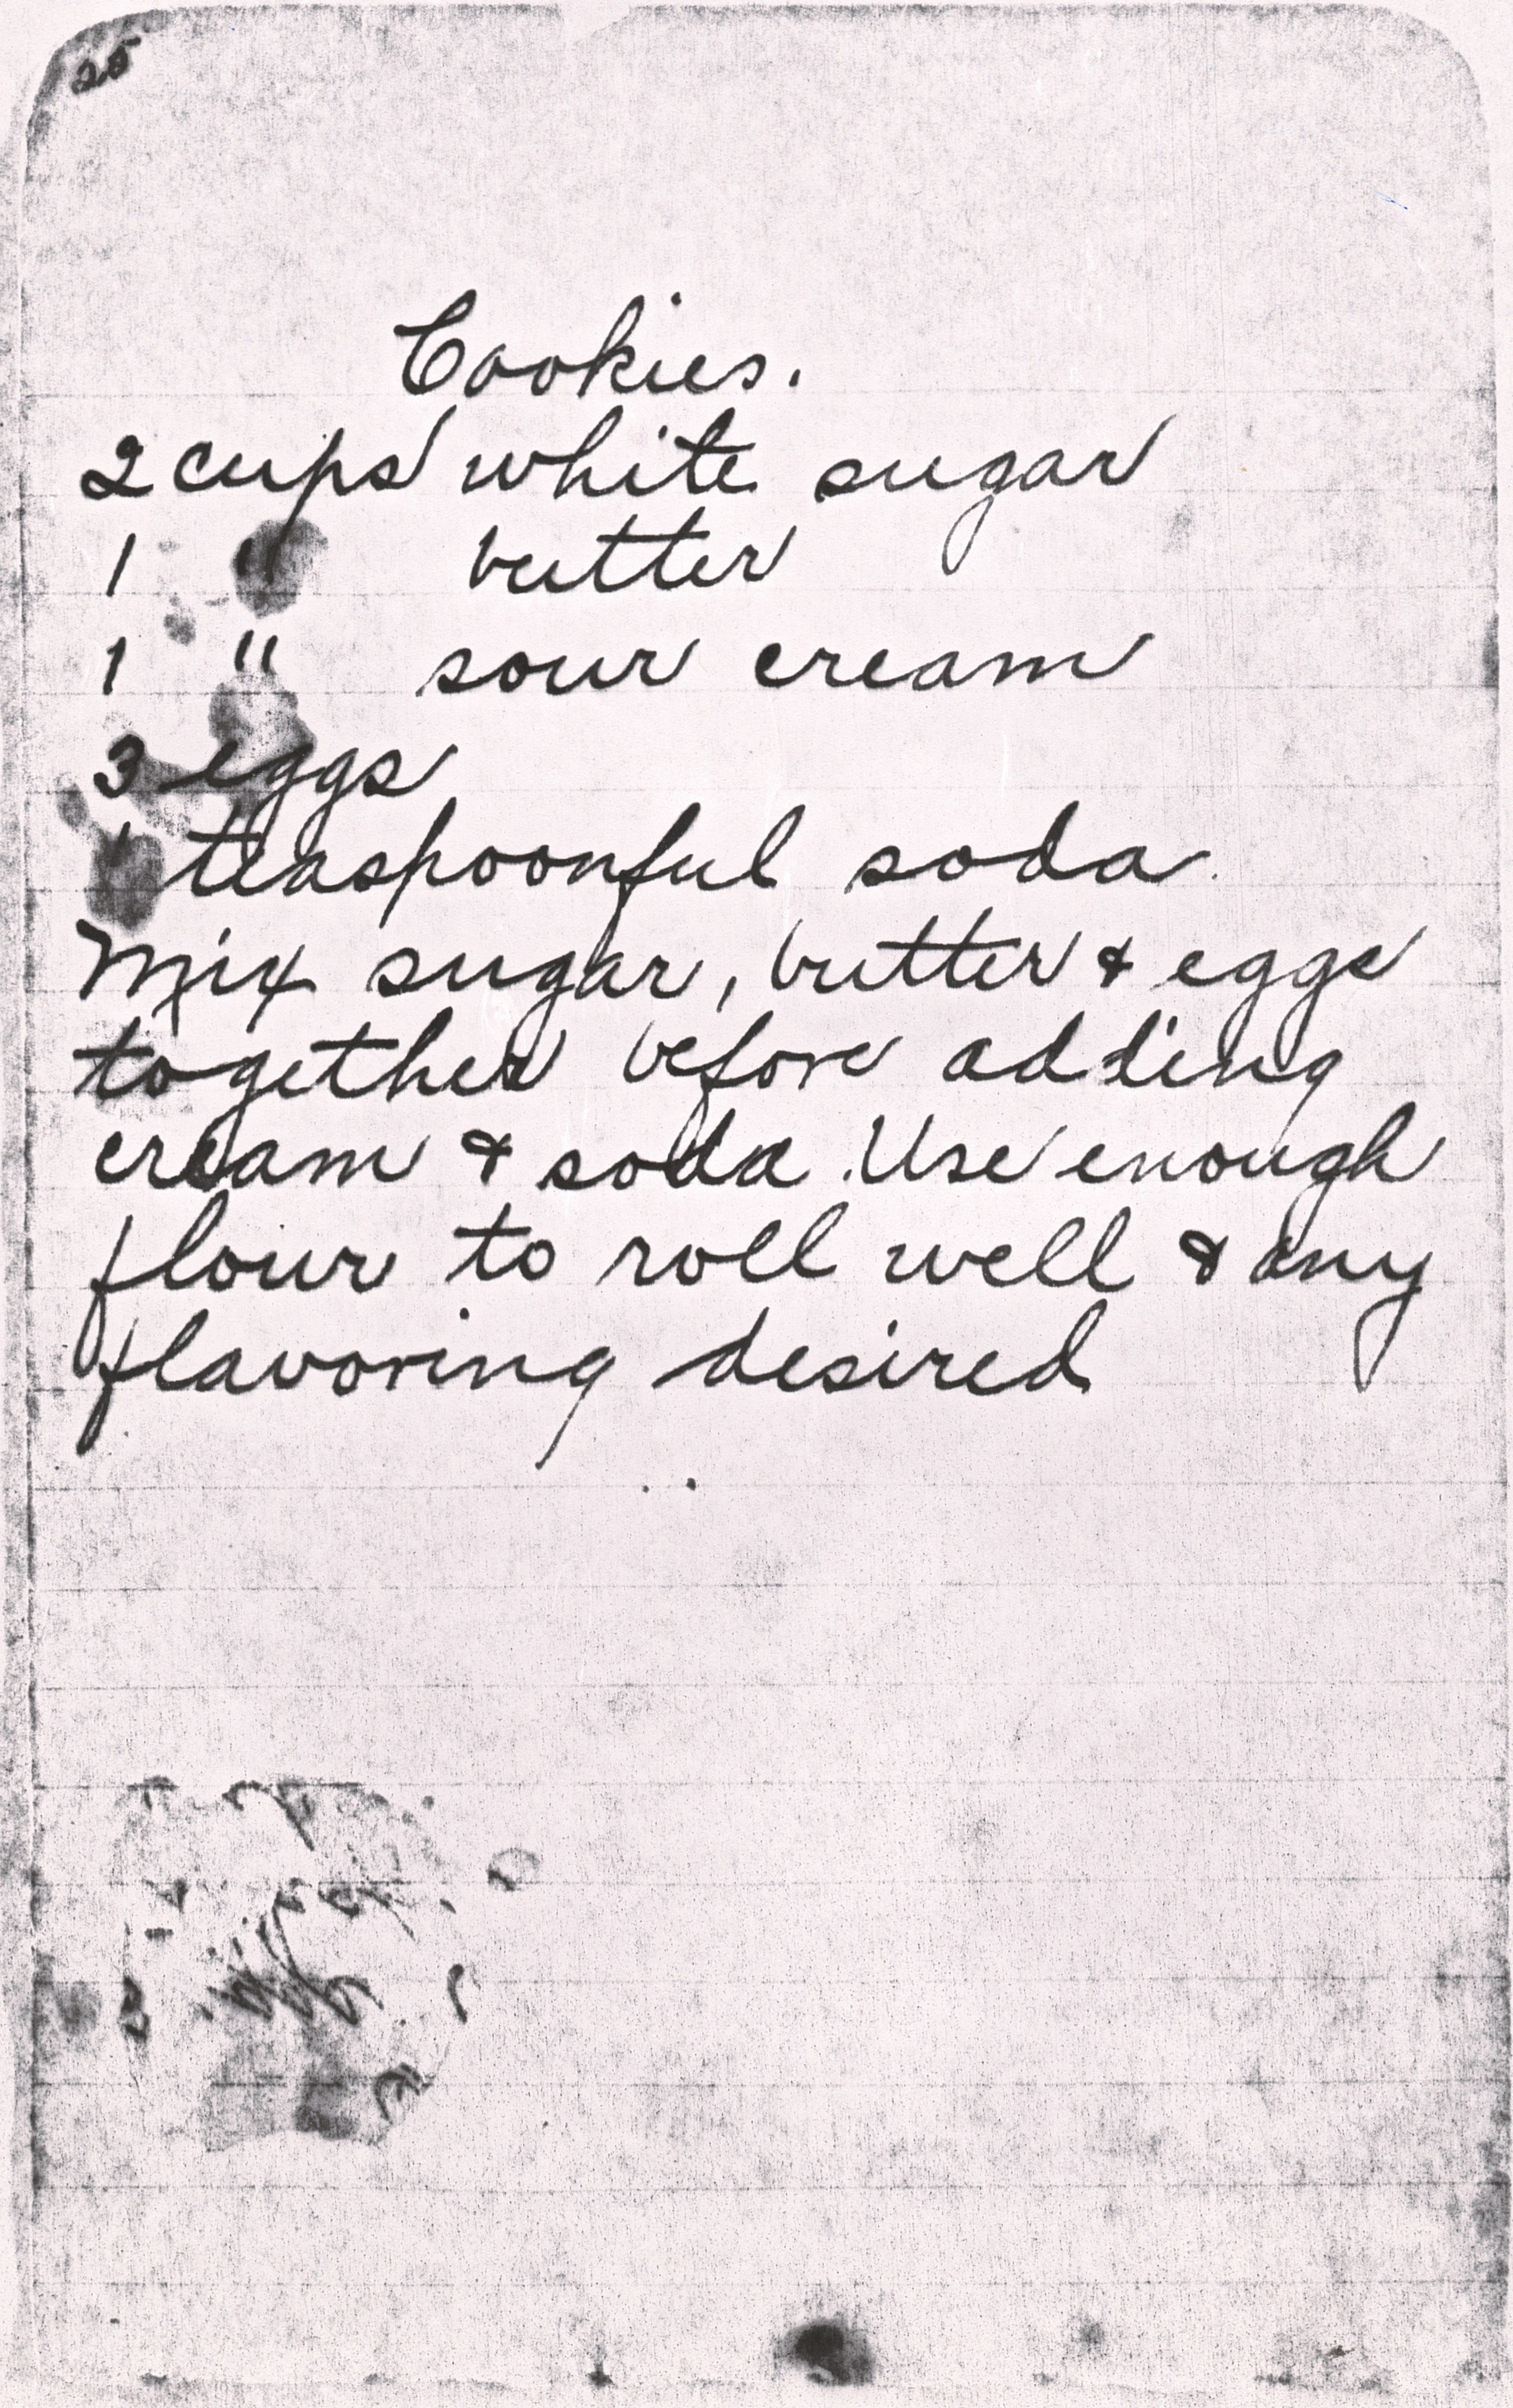 25
Cookies.
2 cups white sugar
1 " butter
1 " sour cream
3 eggs
1 teaspoonful soda
Mix sugar, butter & eggs
together before adding
cream & soda. Use enough
flour to roll well & any
flavoring desired